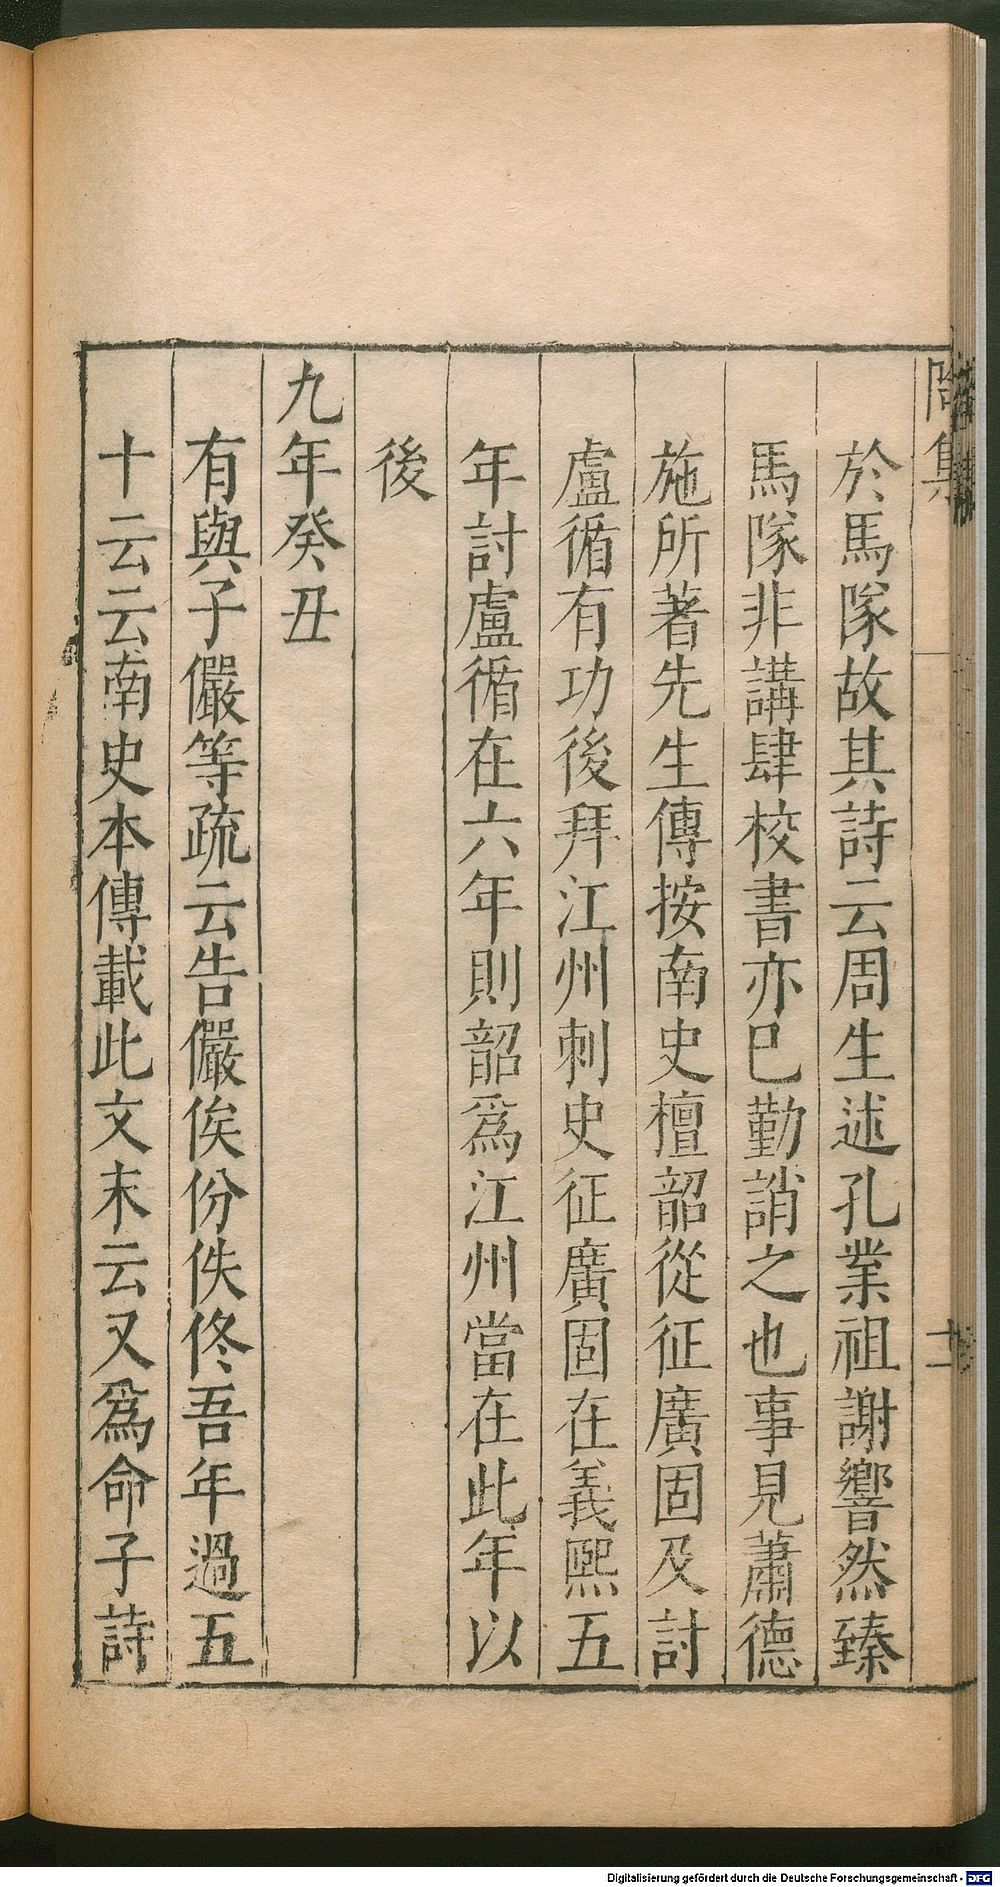 於馬隊故其詩云周生述孔業祖謝響然臻
馬隊非講肆校書亦已勤誚之也事見蕭德
施所著先生傳按南史檀韶從征廣固及討
盧循有功後拜江州刺史征廣固在義熙五
年討盧循在六年則韶爲江州當在此年以
後
九年癸丑
有與子儼等疏云告儼俟份佚佟吾年過五
十云云南史本傳載此文末云又爲命子詩
Digitalisierung gefördert durch die Deutsche Forschungsgemeinschaft - DFG